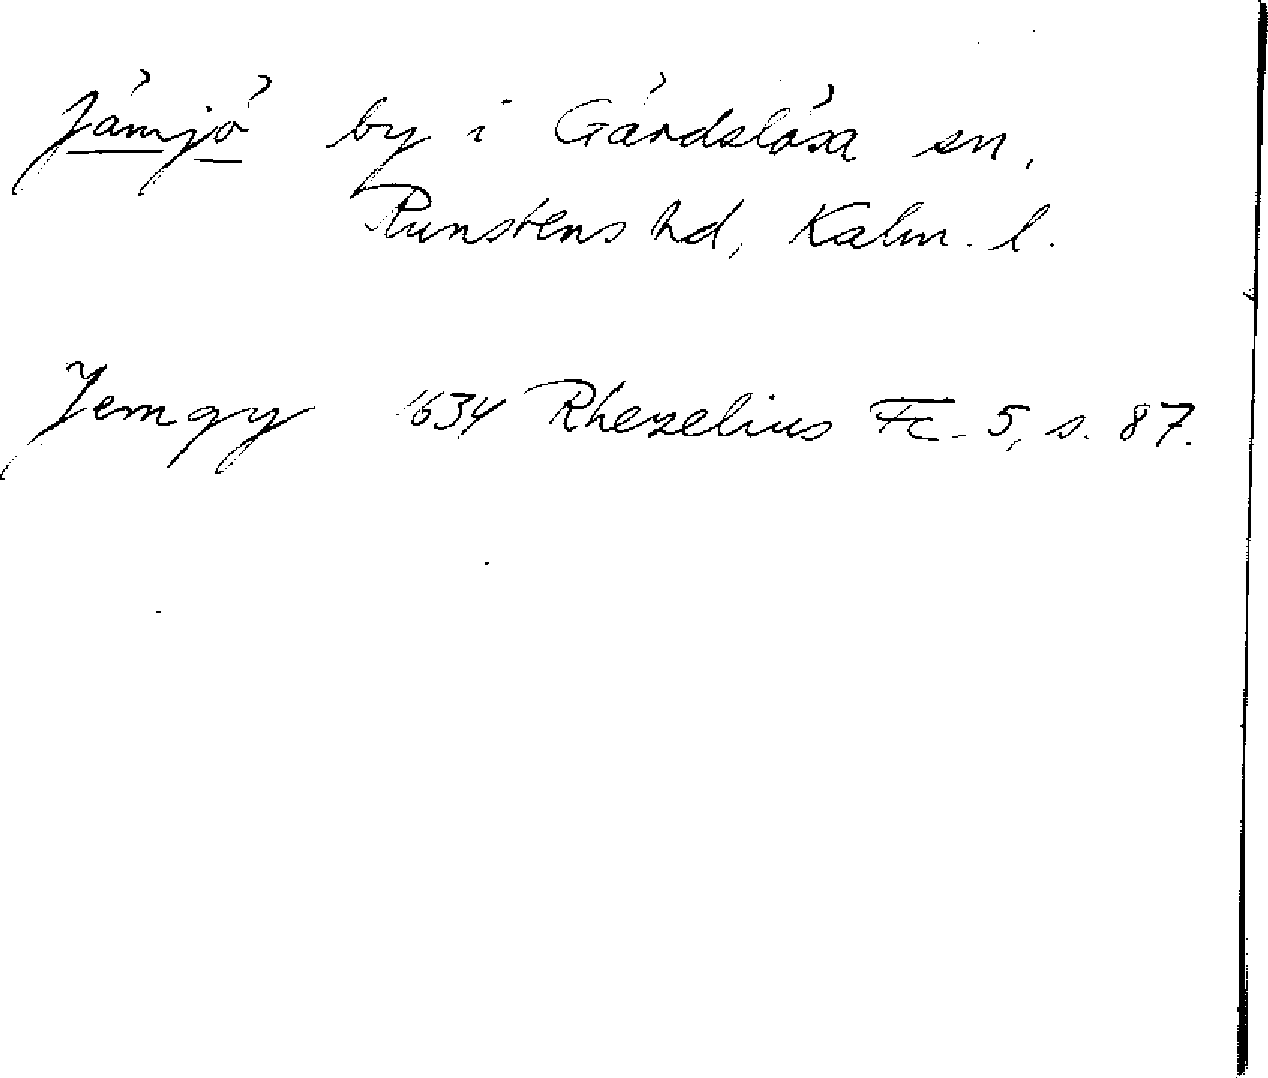 Jämjö by i Gärdslösa sn,
Runstens hd, Kalm. l.
Jemgy 1634 Rhezelius Fc. 5, s. 87.